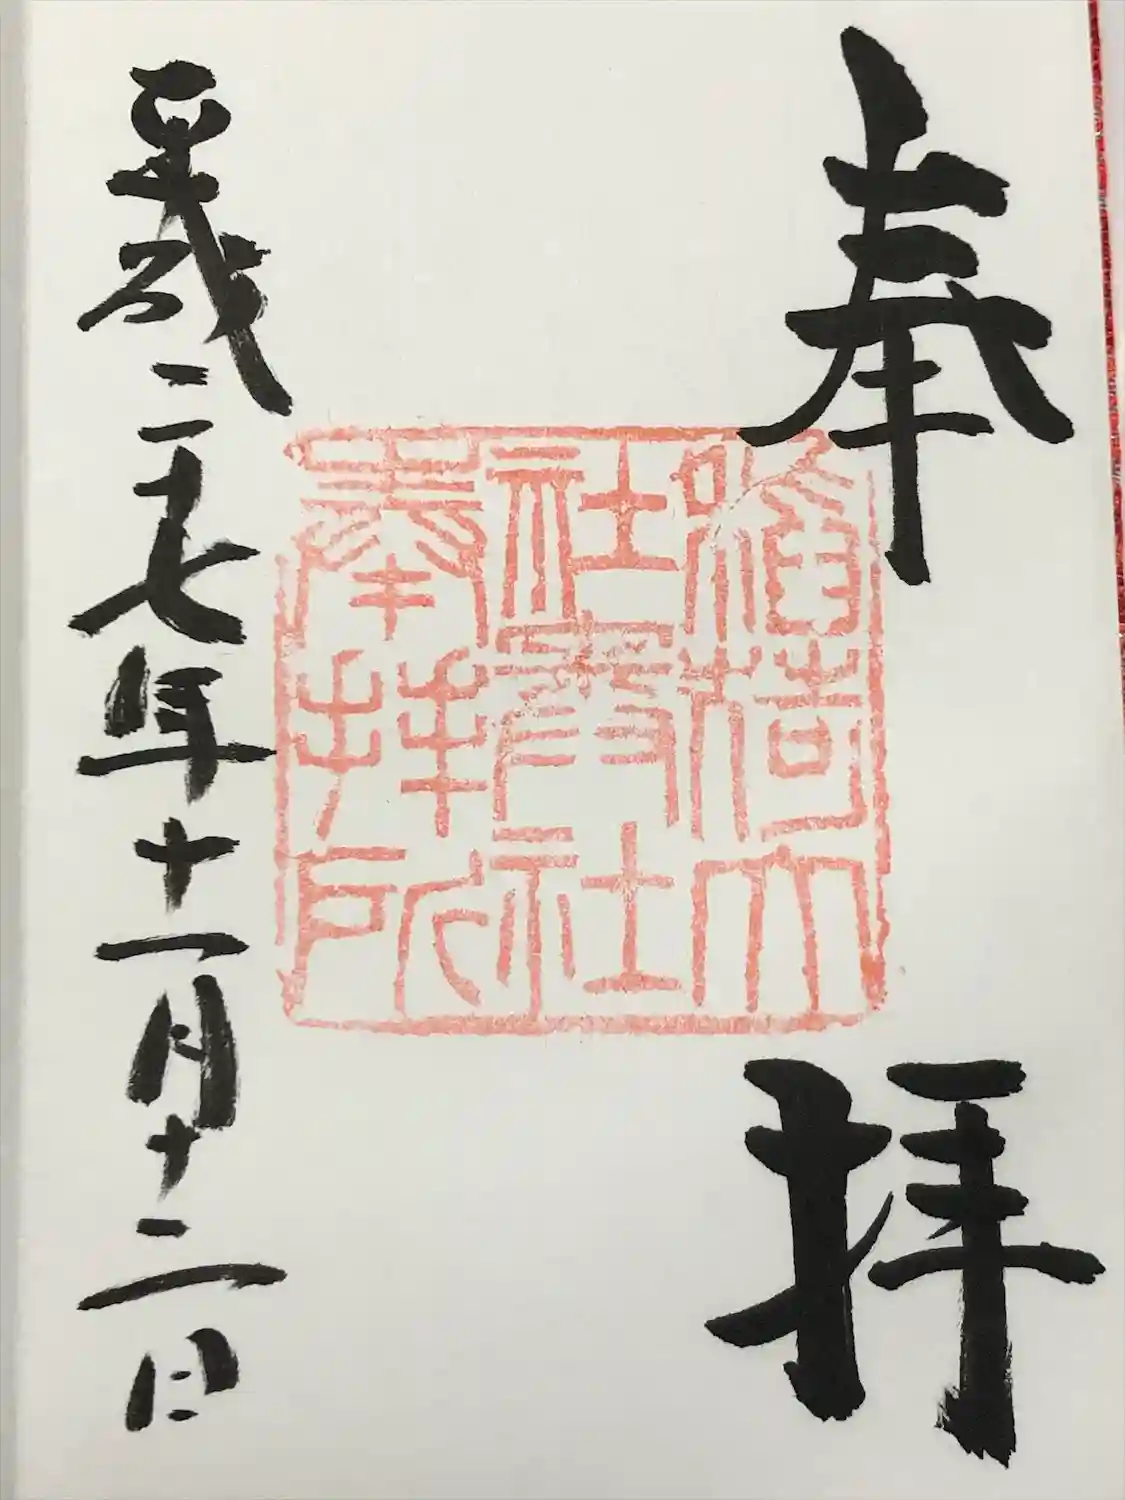 奉拝
稲荷大
社奥社
奉拝所
平成二十七年十一月十二日